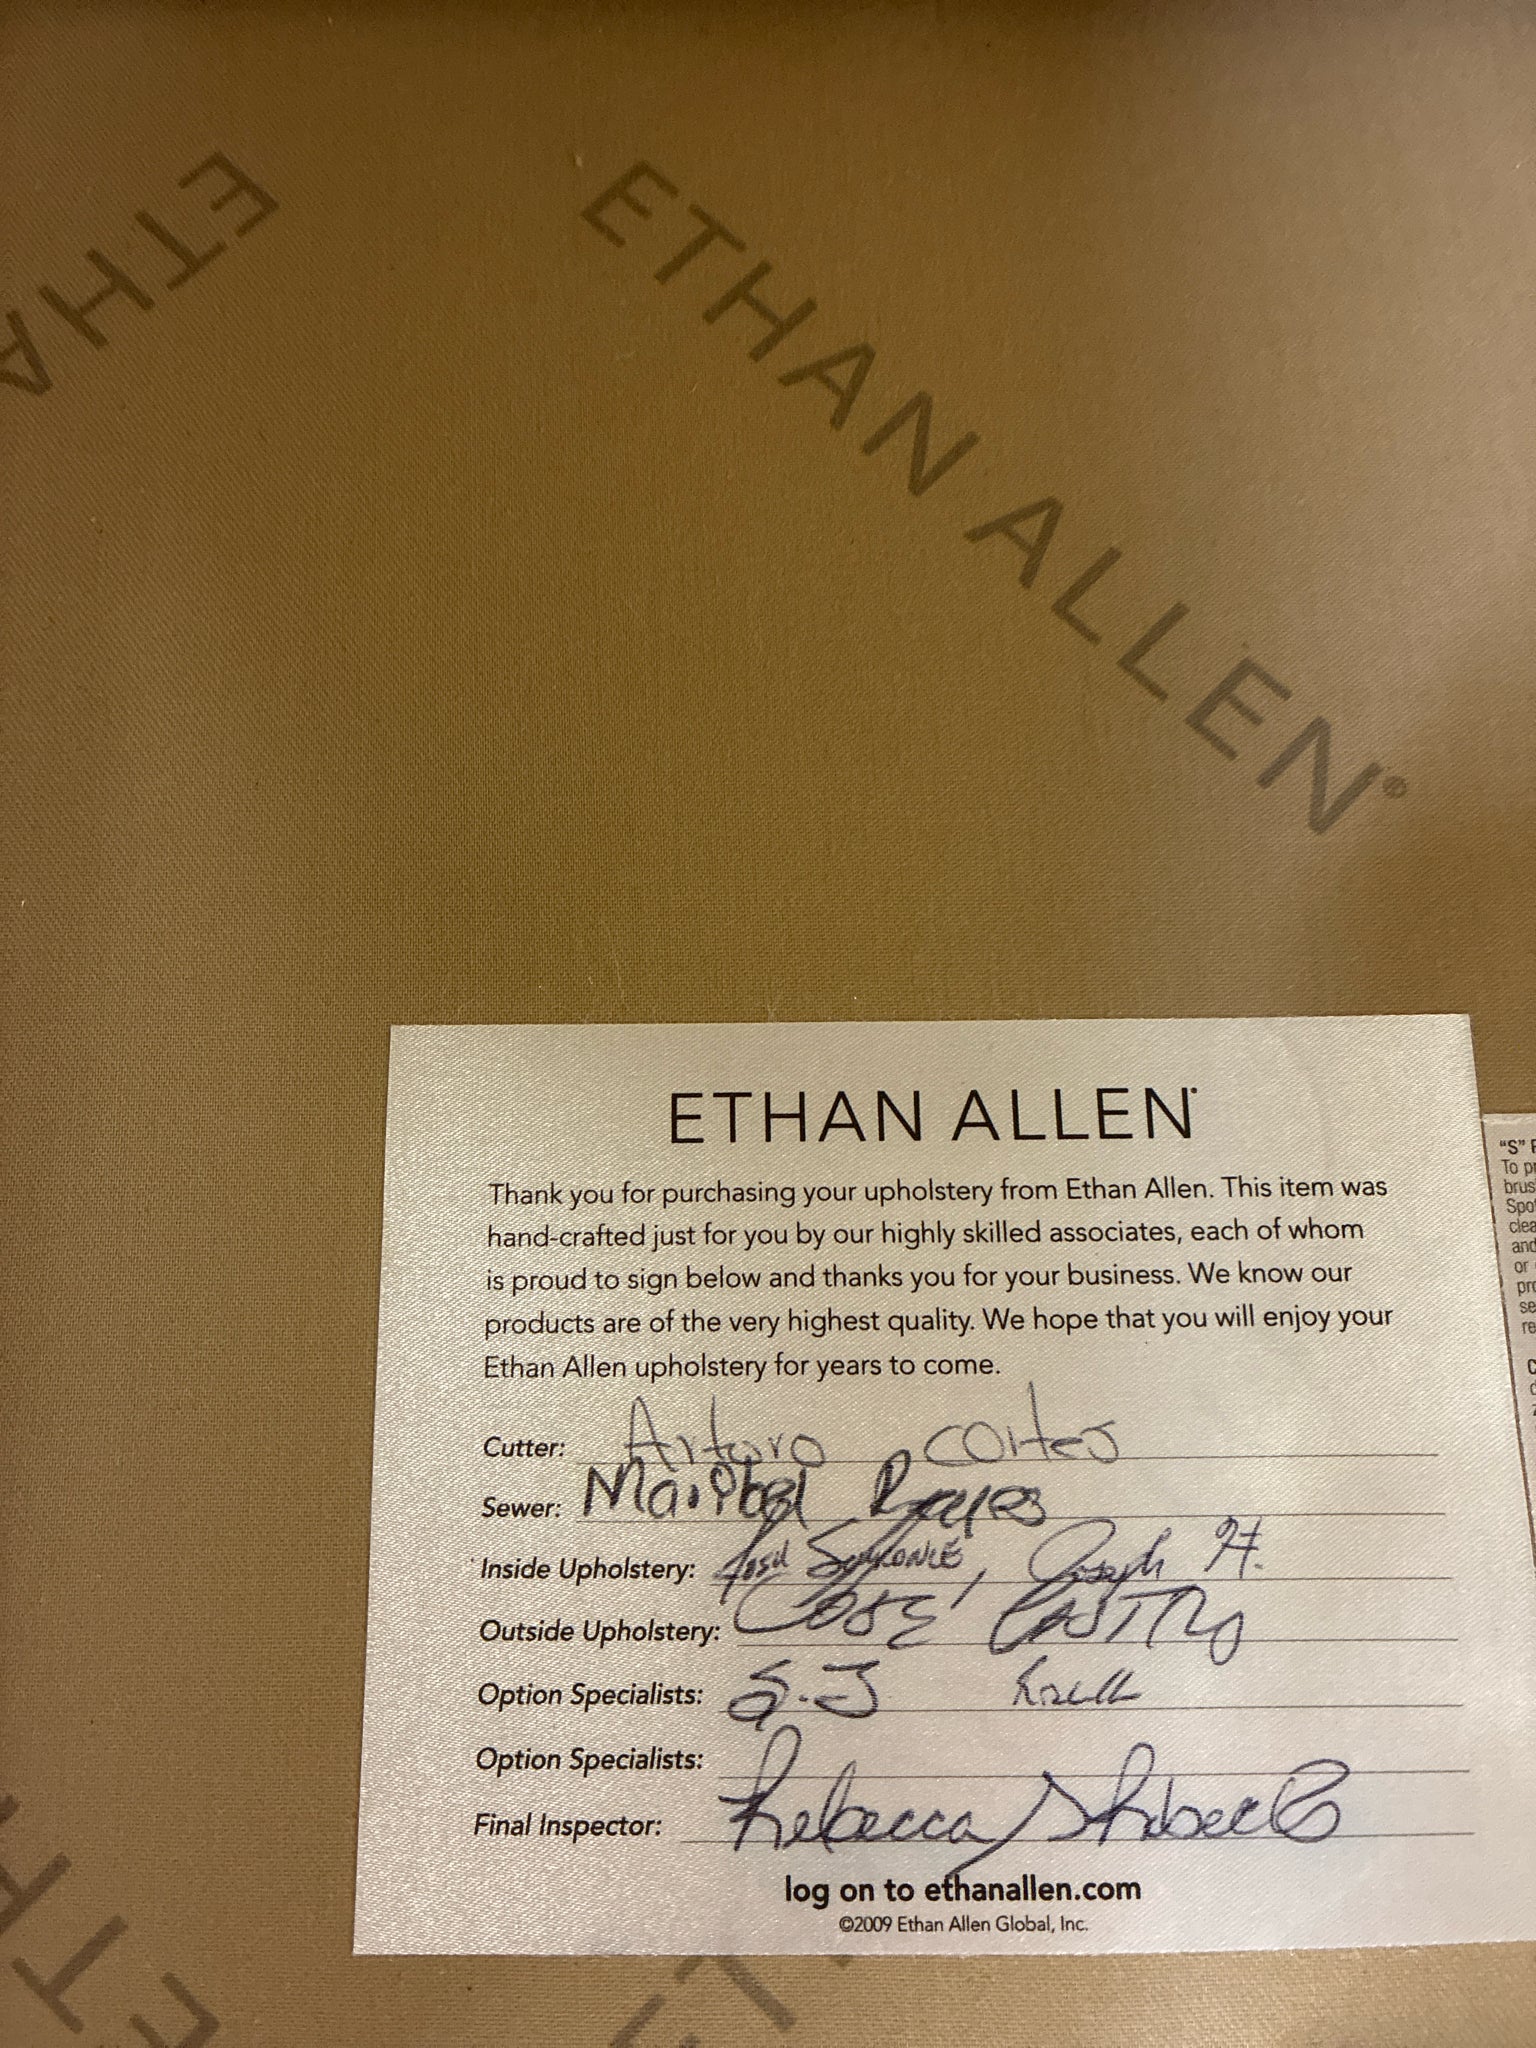 ETHA
ETHAN ALLEN®
ETHAN ALLEN®
Thank you for purchasing your upholstery from Ethan Allen. This item was
hand-crafted just for you by our highly skilled associates, each of whom
is proud to sign below and thanks you for your business. We know our
products are of the very highest quality. We hope that you will enjoy your
Ethan Allen upholstery for years to come.
Cutter: Arturo Cortes
Sewer: Maribel Reyes
Inside Upholstery: Josh , Joseph H.
Outside Upholstery: José CASTRO
Option Specialists: S.J
Option Specialists:
Final Inspector: Rebecca
log on to ethanallen.com
©2009 Ethan Allen Global, Inc.
"S"
To
Spot
and
or